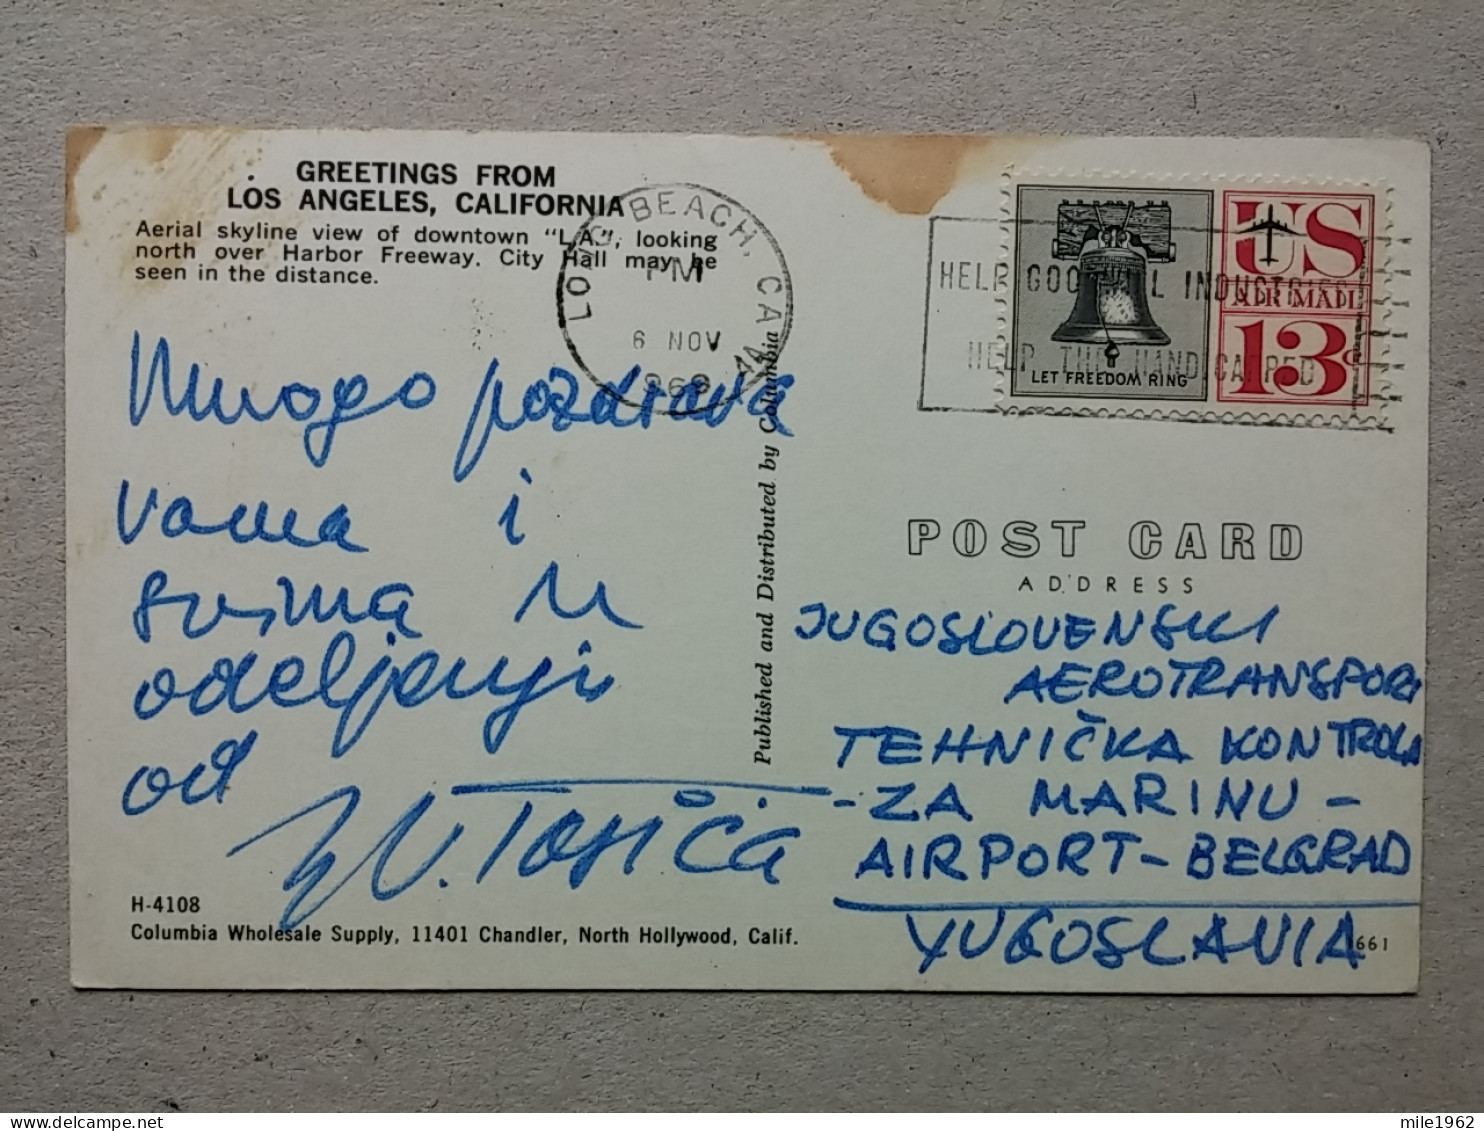 GREETINGS FROM
LOS ANGELES, CALIFORNIA
Aerial skyline view of downtown "L.A.", looking
north over Harbor Freeway. City Hall may be
seen in the distance.
LONG BEACH, CA
PM
6 NOV
HELP GOODWILL INDUSTRIES
HELP THE HANDICAPPED
US
AIR MAIL
13c
LET FREEDOM RING
Mnogo pozdrava
vama i
svima u
odeljenju
od
V. Tosića
Published and Distributed by Columbia
POST CARD
ADDRESS
JUGOSLOVENSKI
AEROTRANSPORT
TEHNIČKA KONTROLA
-ZA MARINU-
AIRPORT-BELGRAD
YUGOSLAVIA
H-4108
Columbia Wholesale Supply, 11401 Chandler, North Hollywood, Calif.
661
mile1962